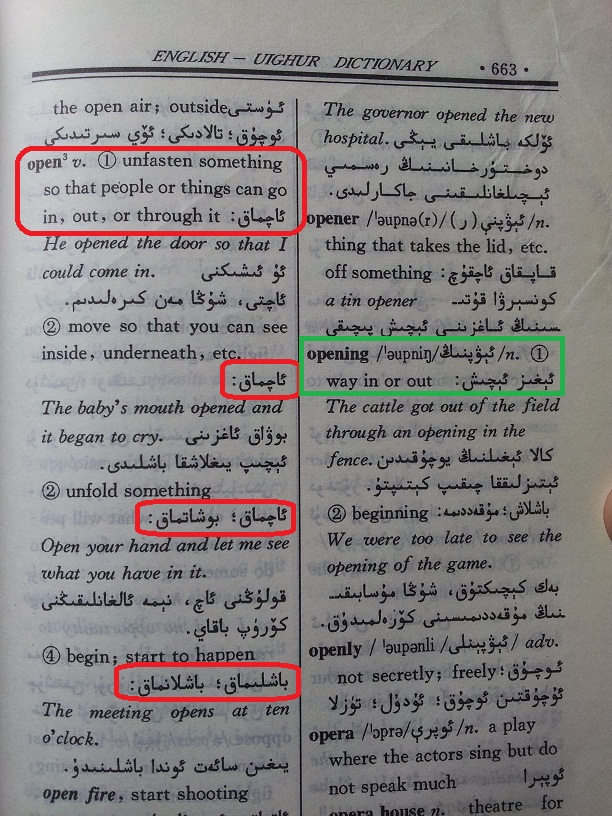 ENGLISH — UIGHUR DICTIONARY · 663 ·
the open air; outside ئۈستى
ئوچۇق؛ تالادىكى؛ ئۆي سىرتىدىكى
open³ v. ① unfasten something
so that people or things can go
in, out, or through it ئاچماق:
He opened the door so that I
could come in. ئۇ ئىشىكنى
ئاچتى، شۇڭا مەن كىرەلىدىم.
② move so that you can see
inside, underneath, etc.
ئاچماق:
The baby's mouth opened and
it began to cry. بوۋاق ئاغزىنى
ئېچىپ يىغلاشقا باشلىدى.
② unfold something
ئاچماق؛ بوشاتماق:
Open your hand and let me see
what you have in it.
قولۇڭنى ئاچ، نېمە ئالغانلىقىڭنى
كۆرۈپ باقاي.
④ begin; start to happen
باشلىماق؛ باشلانماق:
The meeting opens at ten
o'clock.
يىغىن سائەت ئوندا باشلىنىدۇ.
open fire, start shooting
The governor opened the new
hospital. ئۆلكە باشلىقى يېڭى
دوختۇرخانىنىڭ رەسمىي
ئېچىلغانلىقىنى جاكارلىدى.
opener /ˈəupnə(r)/(ئېۋپنې(ر/n.
thing that takes the lid, etc.
off something قاپقاق ئاچقۇچ:
a tin opener كونسېرۋا قۇتــ
ـسىنىڭ ئاغزىنى ئېچىش پىچىقى
opening /ˈəupniŋ/ئېۋپنىڭ/n. ①
way in or out ئېغىز ئېچىش:
The cattle got out of the field
through an opening in the
fence. كالا ئېغىلنىڭ يوچۇقىدىن
ئېتىزلىققا چىقىپ كېتىپتۇ.
② beginning باشلاش؛ مۇقەددىمە:
We were too late to see the
opening of the game.
بەك كېچىكتۇق، شۇڭا مۇسابىقىــ
ـنىڭ مۇقەددىمىسىنى كۆرەلمىدۇق.
openly /ˈəupənli/ئېۋپېنلى/ adv.
not secretly; freely ئوچۇق؛
ئوچۇقتىن ئوچۇق؛ ئۇدۇل؛ تۈزلا
opera /ˈɔprə/ئوپرې/n. a play
where the actors sing but do
not speak much ئوپېرا
opera house n. theatre for